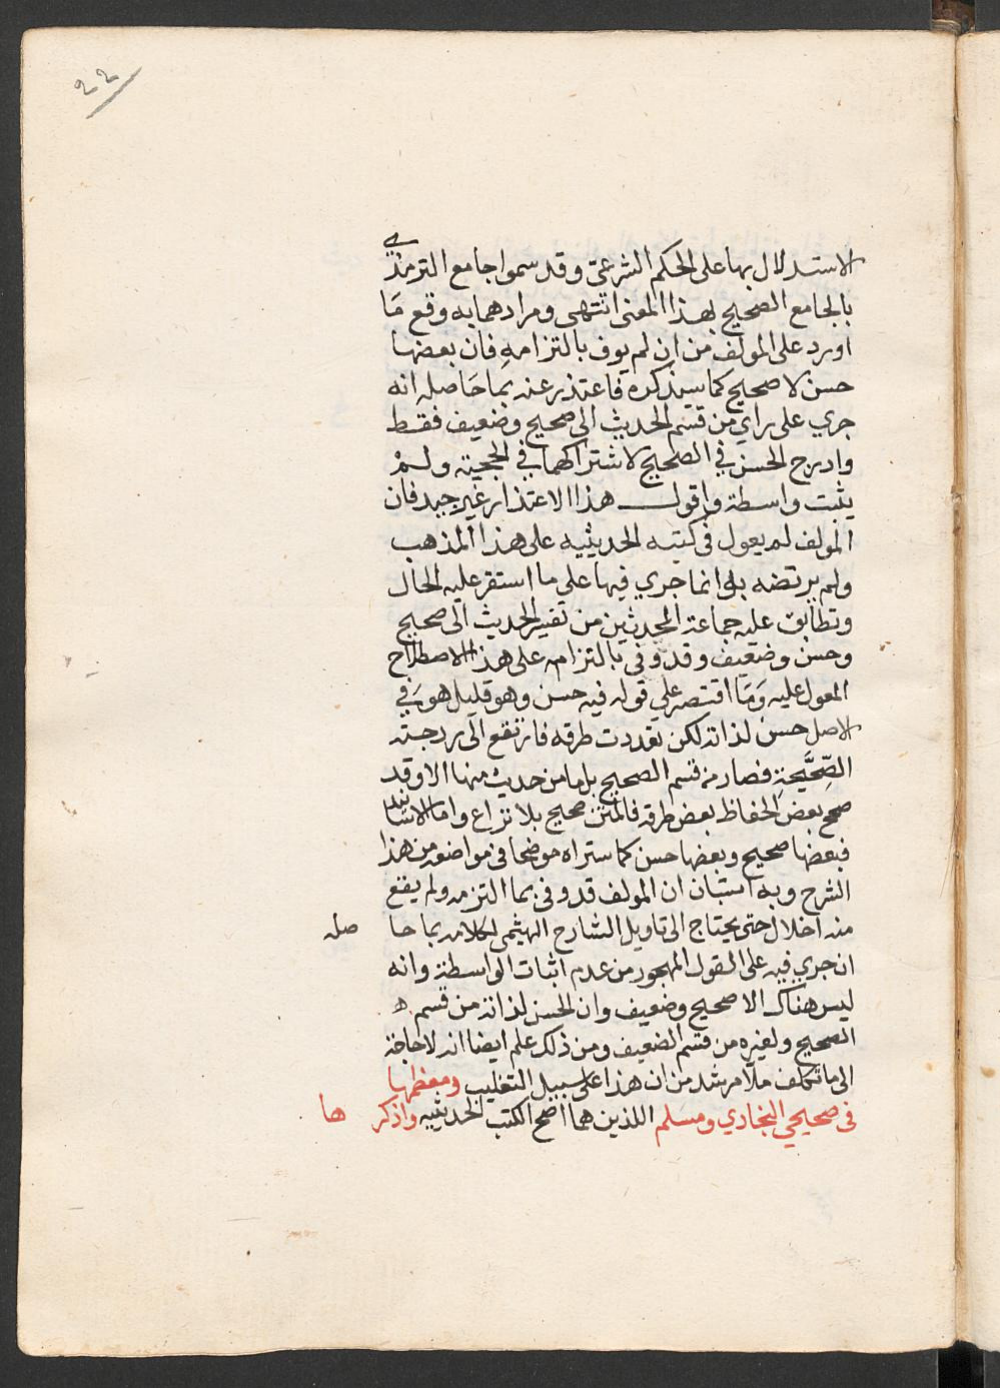 22
الاستدلال بها على الحكم الشرعي وقد سموا جامع الترمذي
بالجامع الصحيح بهذا المعنى انتهى ومرادهما به وقع مَا
اورد على المولف من ان لم يوف بالتزامه فان بعضها
حسن لا صحيح كما سيذكره فاعتذر عنه بما حَاصله انه
جري على راي من قسم الحديث الى صحيح وضعيف فقط
وادرج الحسن في الصحيح لاشتراكهما في الحجية ولم
يثبت واسطة واقول هذا الاعتذار غير جيد فان
المولف لم يعول في كتبه الحديثيه على هذا المذهب
ولم يرتضه بل انما جري فيها على ما استقر عليه الحال
وتطابق عليه جماعة المحدثين من تقسيم الحديث الى صحيح
وحسن وضعيف وقد وفى بالتزامه على هذا الاصطلاح
المعول عليه وَمَا اقتصر علي قوله فيه حسن وهو قليل هو في
الاصل حسن لذاته لكن تعددت طرقه فارتقع الى درجة
الصِّحَّيحة فصار من قسم الصحيح بل ما من حديث منها الا وقد
صحح بعض الحفاظ بعض طرقه فالمتن صحيح بلا نزاع واما الاسانيد
فبعضها صحيح وبعضها حسن كما ستراه موضحا في مواضع من هذا
الشرح وبه استبان ان المولف قد وفى بما التزمه ولم يقع
منه اخلال حتى يحتاج الى تاويل الشارح الهيثمي لكلامه بما حا صله
ان جري فيه على القول المهجور من عدم اثبات الواسطة وانه
ليس هناك الا صحيح وضعيف وان الحسن لذاته من قسم ه
الصحيح ولغيره من قسم الضعيف ومن ذلك علم ايضا انه لا حاجة
الى ما تكلف ملا مرشد من ان هذا على سبيل التغليب ومعظمها
في صحيحي البخاري ومسلم اللذين هما اصح الكتب الحديثيه واذكر ها